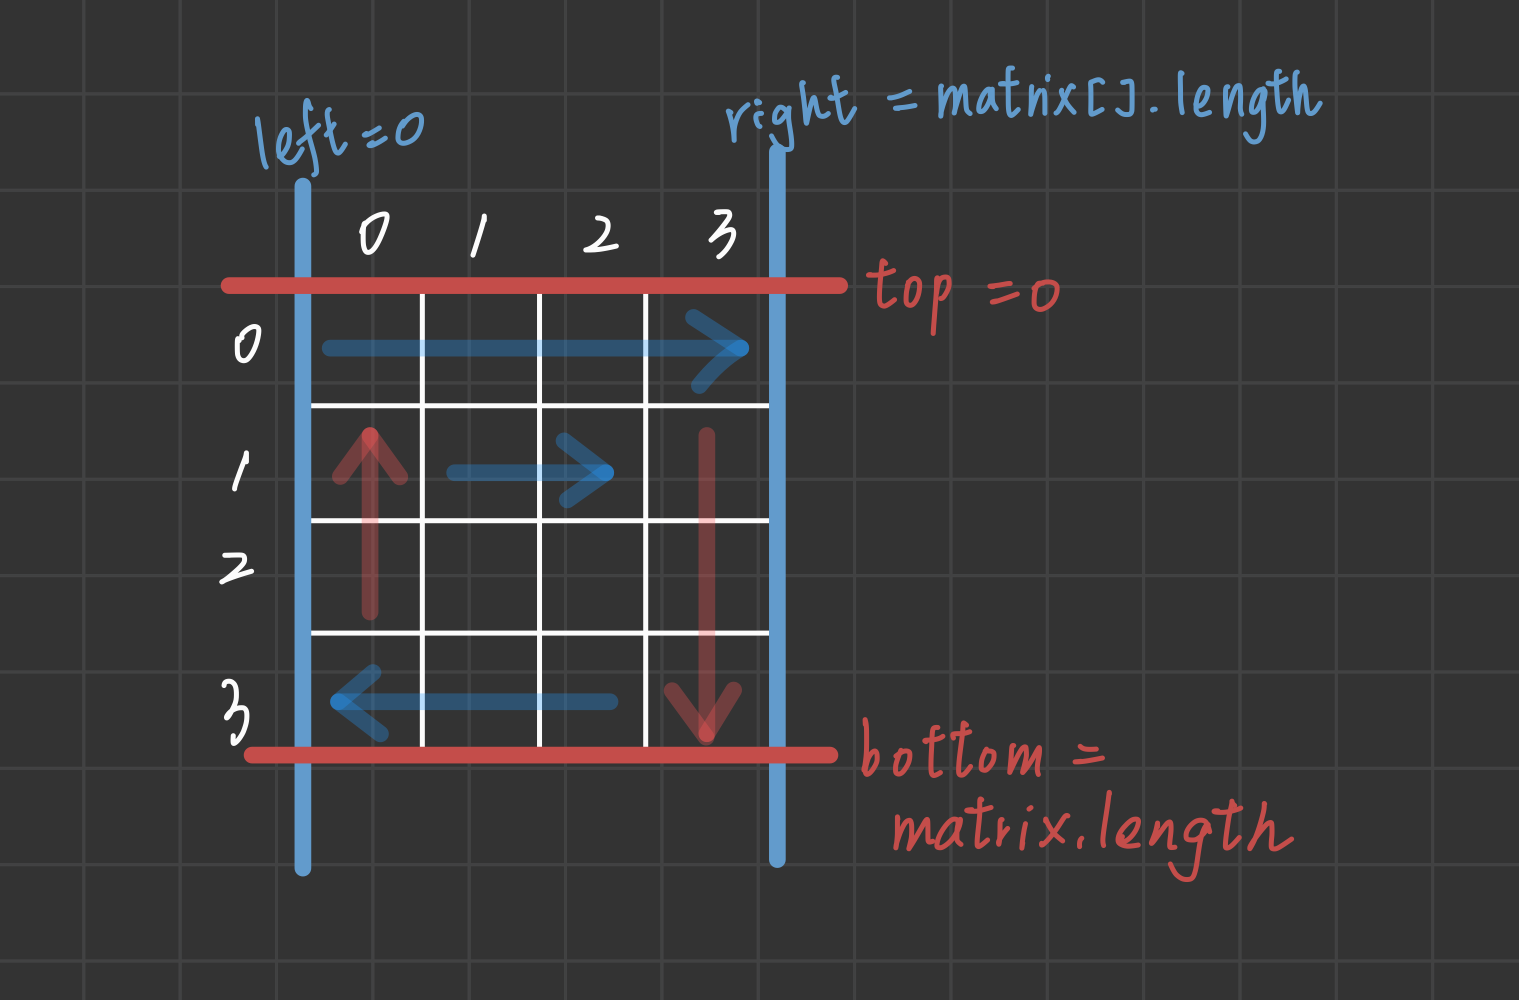 left=0
right = matrix[].length
0 1 2 3
top =0
0
1
2
3
bottom =
matrix.length